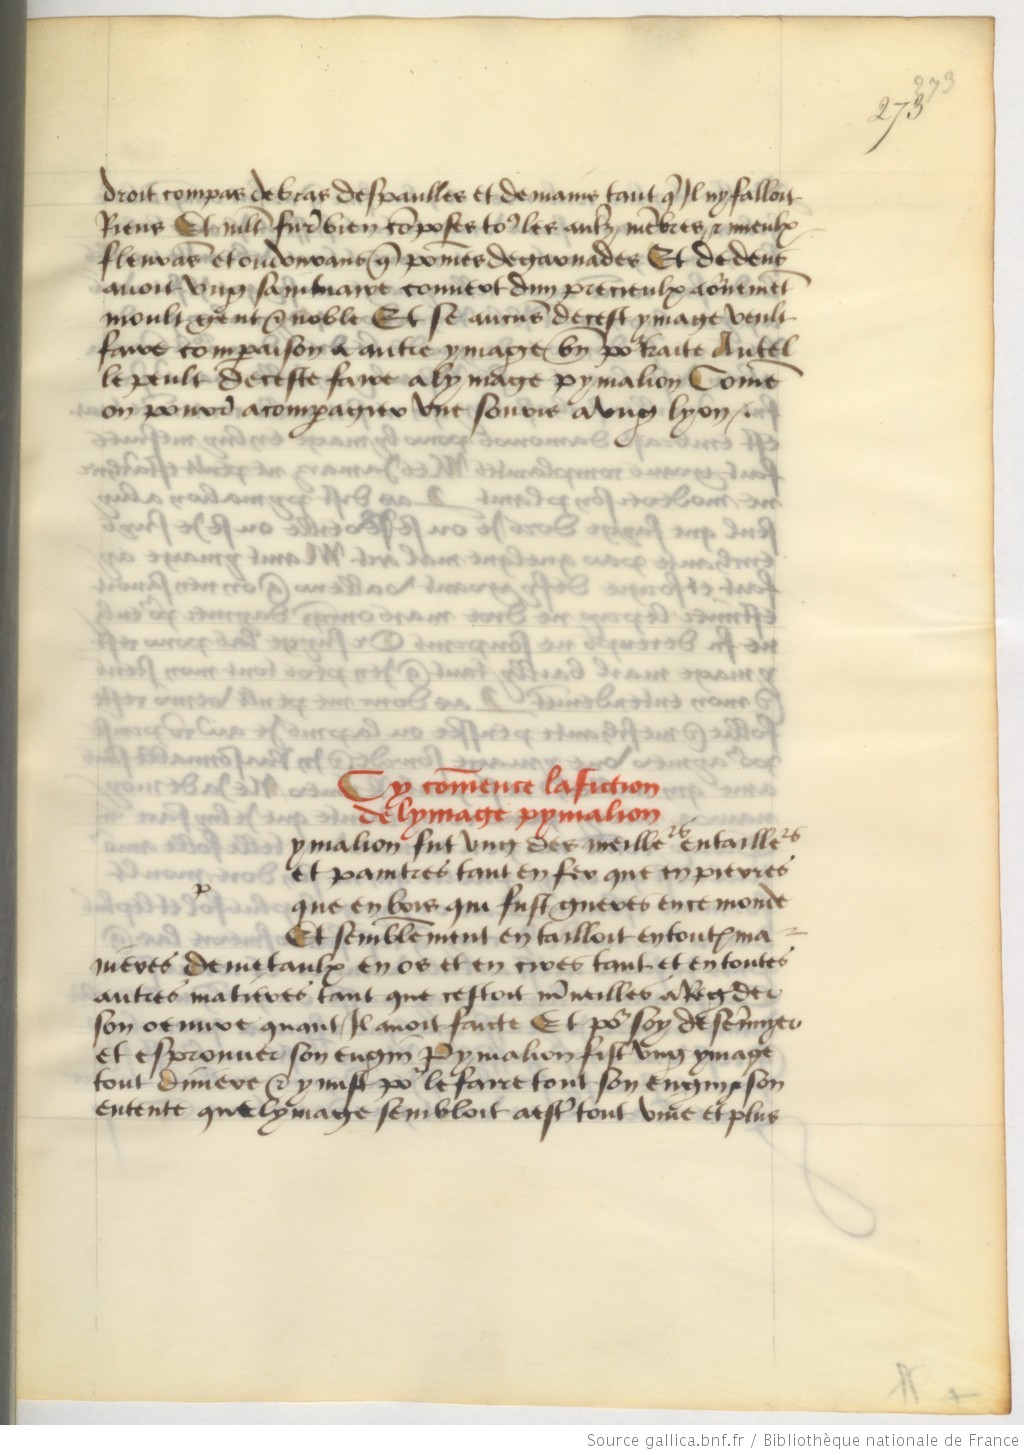 273
273
droit compas de bras despaulles et de mains tant q̃ Jl ny falloit
Riens Et mlt̃ fur̃ bien cõposes to9 les aultz mẽbres z mieulx
fleurãs et oudourans q̃ põmes de garnades Et dedens
auoit vng saintuaire couuert dun precieulx aõrnemẽt
moult gent z noble Et se aucũs de cest ymage veult
faire comparaison a autre ymage bñ portraite Autel
le peult de ceste faire a lymage pymalion Comẽ
on pourr̃ acompagier vne souris a vng lyon
Cy cõmence la fiction
de lymage pymalion
p
ymalion fut vng des meille⁹rs entaille⁹rs
et paintres tant en fer que en pierres
que en bois qui fust gueres en ce monde
Et semblẽment entailloit en toutes ma
nieres de metaulx en os et en cires tant et en toutes
autres matieres tant que cestoit m̃ueilles a Regder
son oeuure quant Jl auoit faicte Et po᷑ soy desẽnuyer
et esprouuer son engin Pymalion fist vng ymage
tout diuiere z y mist po᷑ le faire tout son engin z son
entente que lymage sembloit aest᷑ tout viue et plus
Source gallica.bnf.fr / Bibliothèque nationale de France